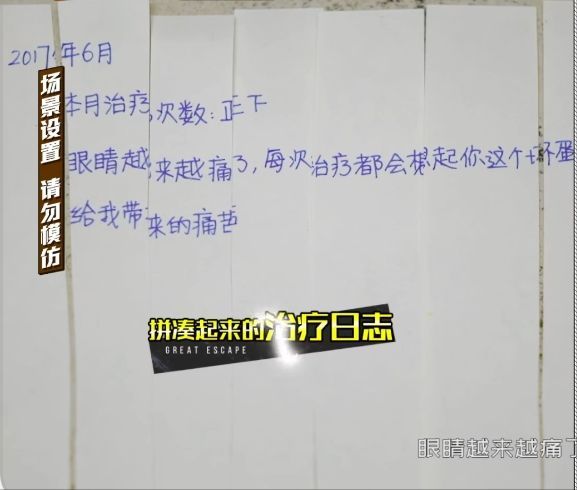 2017年6月
本月治疗次数:正下
眼睛越来越痛了,每次治疗都会想起你这个坏蛋
给我带来的痛苦
场景设置 请勿模仿
拼凑起来的治疗日志
GREAT ESCAPE
眼睛越来越痛了